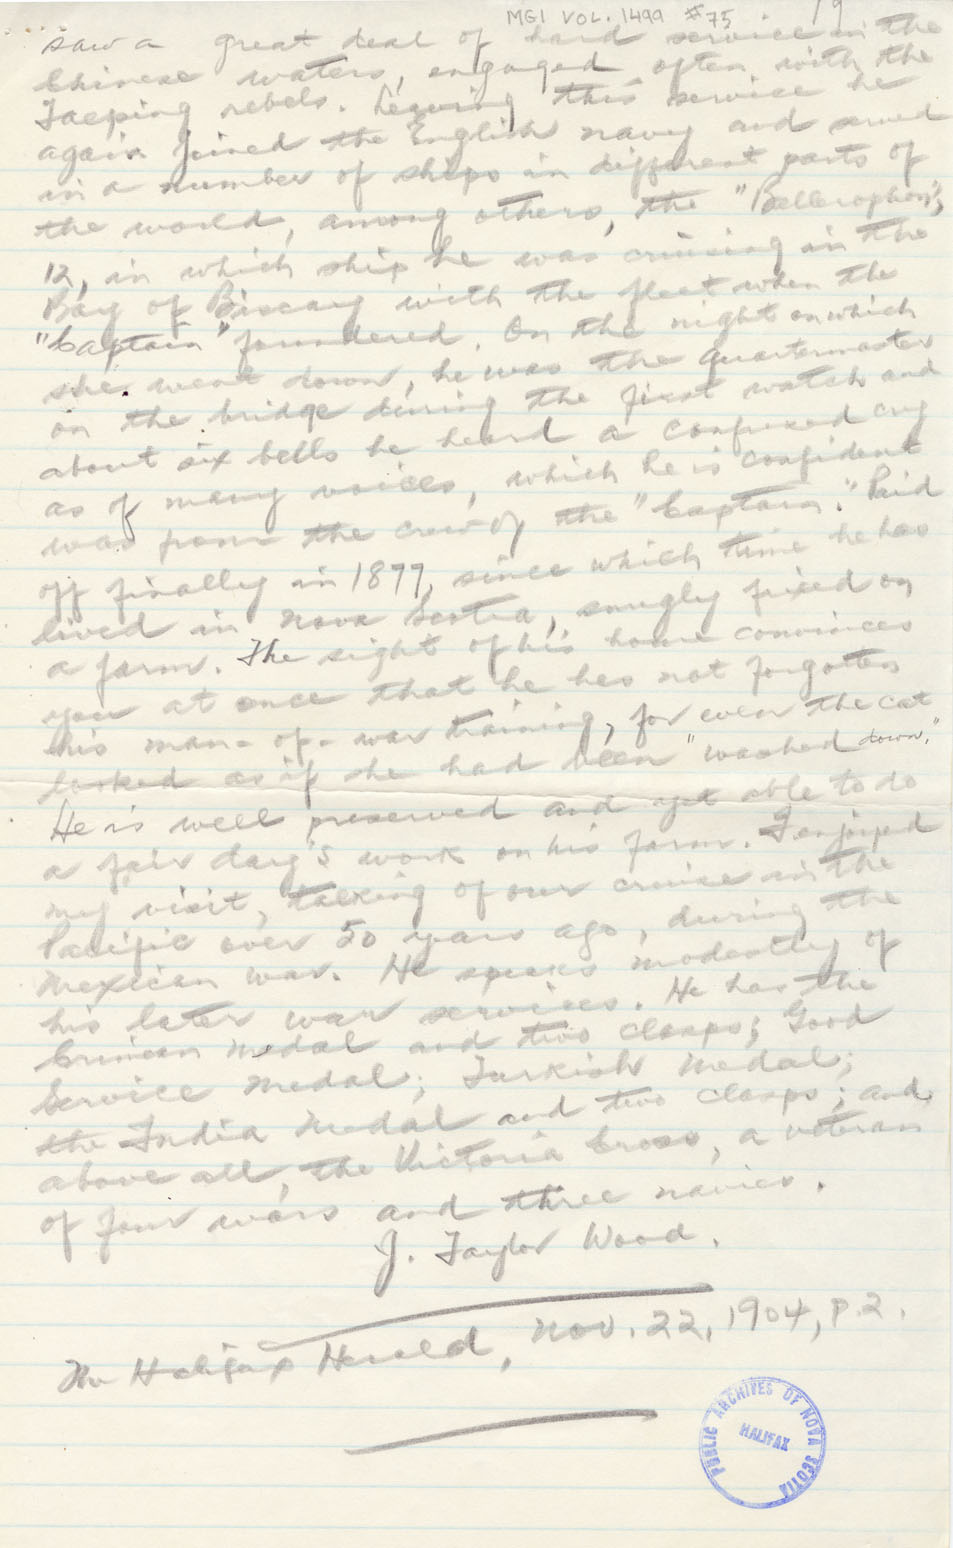 MG1 VOL. 1499 #75
19
saw a great deal of hard service in the
Chinese waters, engaged often with the
Taeping rebels. Leaving this service he
again joined the English navy and served
in a number of ships in different parts of
the world, among others, the "Bellerophon",
12, in which ship he was cruising in the
Bay of Biscay with the fleet when the
"Captain" foundered. On the night on which
she went down, he was the quartermaster
on the bridge during the first watch and
about six bells he heard a confused cry
as of many voices, which he is confident
was from the crew of the "Captain." Paid
off finally in 1877, since which time he has
lived in Nova Scotia, snugly fixed on
a farm. The sight of his home convinces
you at once that he has not forgotten
his man-of-war training, for even the cat
looked as if she had been "washed down."
He is well preserved and yet able to do
a fair day's work on his farm. I enjoyed
my visit, talking of our cruise in the
Pacific over 50 years ago, during the
Mexican war. He speaks modestly of
his later war services. He has the
Crimean Medal and two clasps; Good
Service Medal; Turkish Medal;
the India Medal and two clasps; and,
above all, the Victoria Cross, a veteran
of four wars and three navies.
J. Taylor Wood.
The Halifax Herald, Nov. 22, 1904, p. 2.
PUBLIC ARCHIVES OF NOVA SCOTIA
HALIFAX